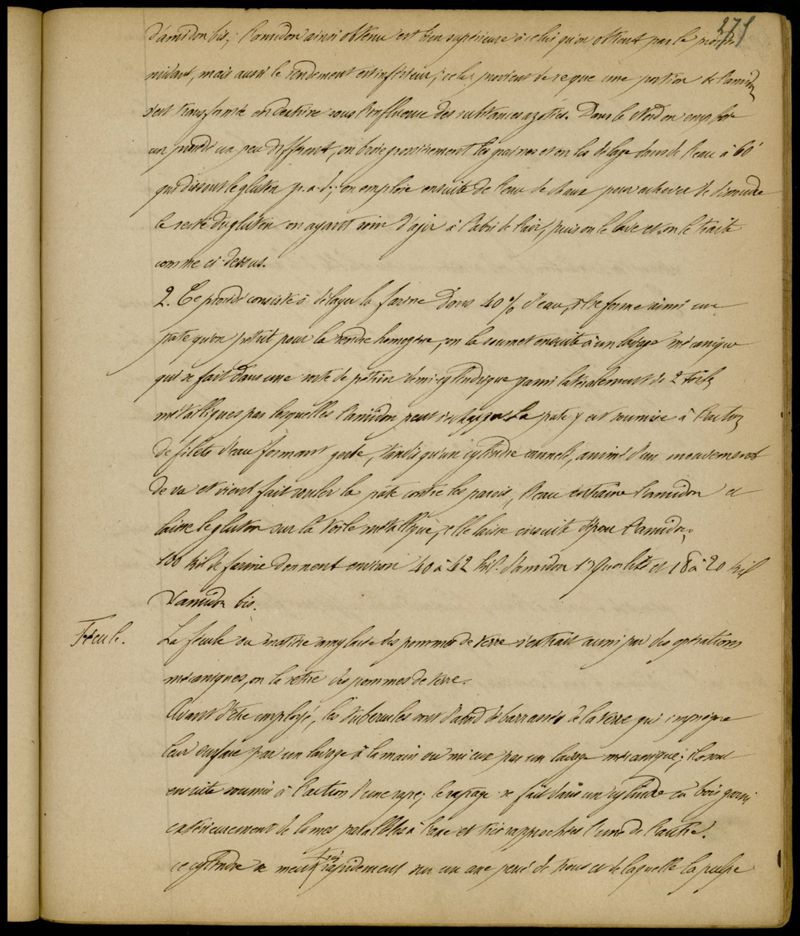 271
d'amidon bis; l'amidon ainsi obtenu est bien supérieure à celui qu'on obtient par le procédé
, mais aussi le rendement est inférieur; cela provient de ce que une portion de l'amidon
s'est transformé en dextrine sous l'influence des substances azotées. Dans le Nord on emploie
un procédé un peu différent, on broie grossièrement les graines et on les délaye dans de l'eau à 60°
qui dissout le gluten p.a.d; on emploie ensuite de l'eau de chaux pour achever de dissoudre
le reste du gluten en ayant soin d'agir à l'abri de l'air, puis on le lave et on le traite
comme ci dessus.
2. Ce procédé consiste à délayer la farine dans 40% d'eau, il se forme ainsi une
pate qu'on pétrit pour la rendre homogène, on la soumet ensuite à un lavage mécanique
qui se fait dans une sorte de pétrin demi-cylindrique garni latéralement de 2 toiles
métalliques par lesquelles l'amidon peut la pate y est soumise à l'action
de filets d'eau formant gerbe, tandis qu'un cylindre cannelé, animé d'un mouvement
de va et vient fait rouler la pâte contre les parois, l'eau entraine l'amidon et
laisse le gluten sur la toile métallique, elle laisse ensuite déposer l'amidon,
100 kil de farine donnent environ 40 à 42 kil. d'amidon 1e qualité et 18 à 20 kil
d'amidon bis.
Fécule.
La fécule ou matière amylacée des pommes de terre s'extrait aussi par des opérations
mécaniques, on la retire des pommes de terre.
Avant d'être employé, les tubercules sont d'abord débarrassés de la terre qui imprègne
leur surface par un lavage à la main ou mieux par un lavage mécanique; ils sont
ensuite soumis à l'action d'une rape; le rapage se fait dans un cylindre en bois garni
extérieurement de lames parallèles à l'axe et très rapprochées l'une de l'autre.
ce cylindre se meut très rapidement sur un axe percé de trous et de laquelle la pulpe